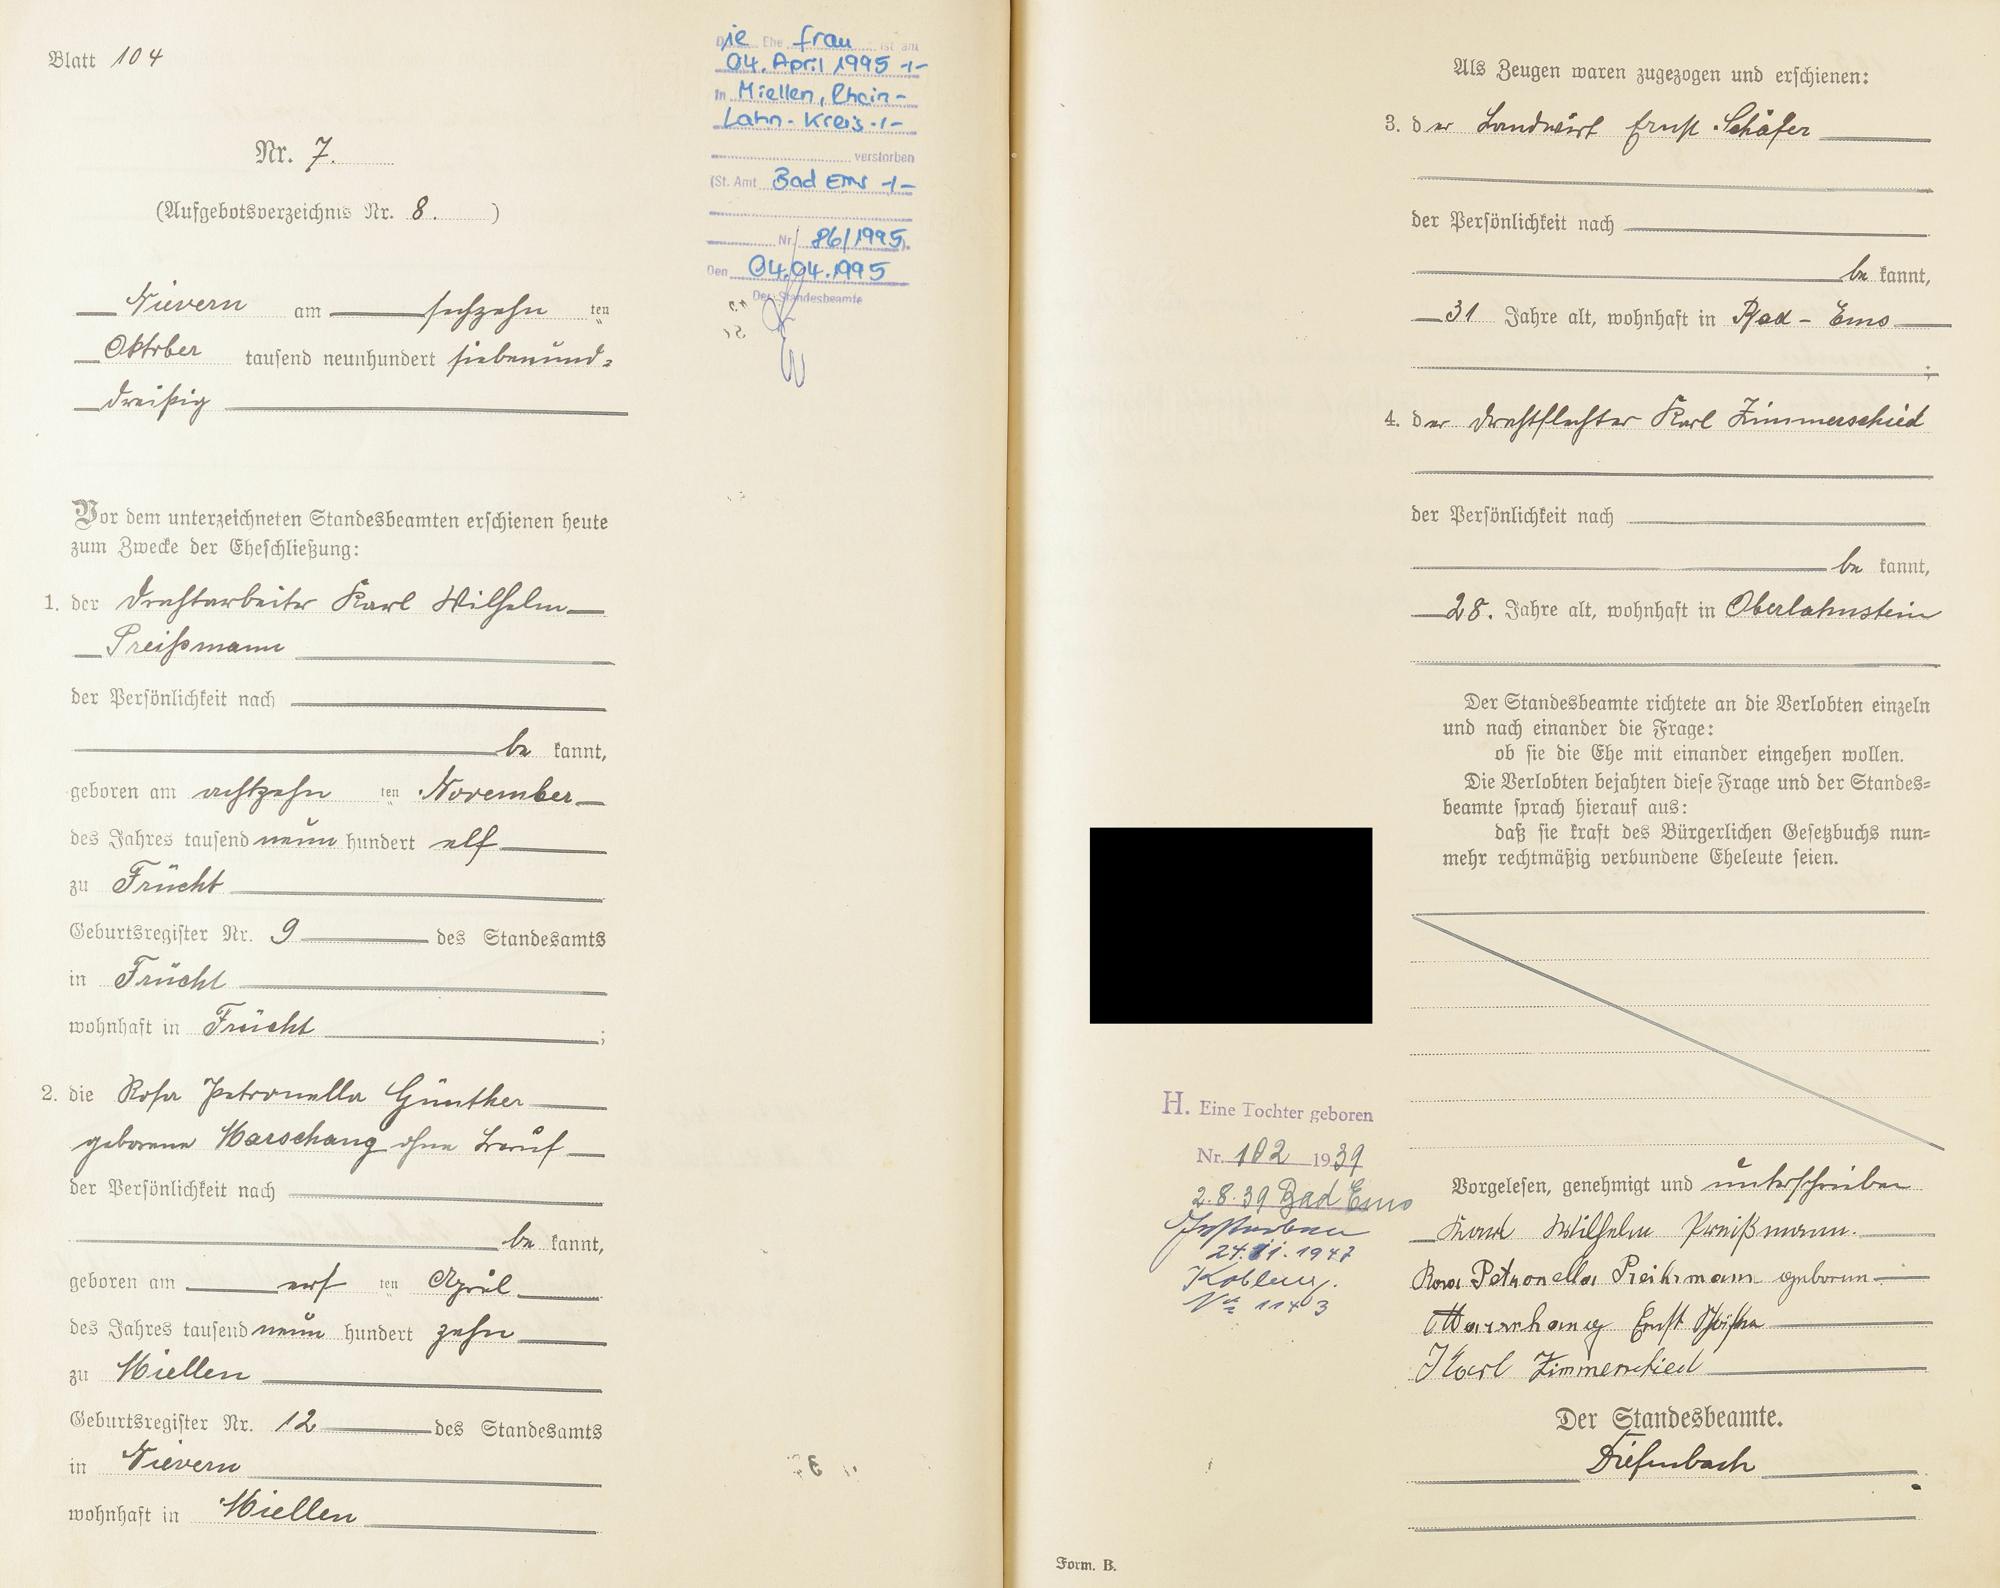 Blatt 104
Nr. 7.
(Aufgebotsverzeichnis Nr. 8. )
Nievern am sechzehn ten
Oktober tausend neunhundert siebenund-
dreißig
Vor dem unterzeichneten Standesbeamten erschienen heute
zum Zwecke der Eheschließung:
1. der Drahtarbeiter Karl Wilhelm
Preißmann
der Persönlichkeit nach
be kannt,
geboren am achtzehn ten November
des Jahres tausend neun hundert elf
zu Frücht
Geburtsregister Nr. 9 des Standesamts
in Frücht
wohnhaft in Frücht ;
2. die Rosa Petronella Günther
geborene Marschang ohne Beruf
der Persönlichkeit nach
be kannt,
geboren am ten April
des Jahres tausend neun hundert zehn
zu Miellen
Geburtsregister Nr. 12 des Standesamts
in Nievern
wohnhaft in Miellen
Die Ehe frau ist am
04. April 1995 -/-
in Miellen, Rhein-
Lahn-Kreis -/-
verstorben
(St. Amt Bad Ems -/-
Nr. 86/1995).
Den 04.04.1995
Der Standesbeamte
Als Zeugen waren zugezogen und erschienen:
3. der Landwirt Ernst Schäfer
der Persönlichkeit nach
be kannt,
31 Jahre alt, wohnhaft in Bad-Ems
;
4. der Drahtflechter Karl Zimmerschied
der Persönlichkeit nach
be kannt,
28. Jahre alt, wohnhaft in Oberlahnstein
Der Standesbeamte richtete an die Verlobten einzeln
und nach einander die Frage:
ob sie die Ehe mit einander eingehen wollen.
Die Verlobten bejahten diese Frage und der Standes-
beamte sprach hierauf aus:
daß sie kraft des Bürgerlichen Gesetzbuchs nun-
mehr rechtmäßig verbundene Eheleute seien.
Vorgelesen, genehmigt und unterschrieben
Karl Wilhelm Preißmann.
Rosa Petronella Preißmann geborene
Marschang Ernst Schäfer
Karl Zimmerschied
Der Standesbeamte.
Diefenbach
H. Eine Tochter geboren
Nr. 102 1939
2.8.39 Bad Ems
Gestorben
24.11.1947
Koblenz.
No 1143
Form. B.